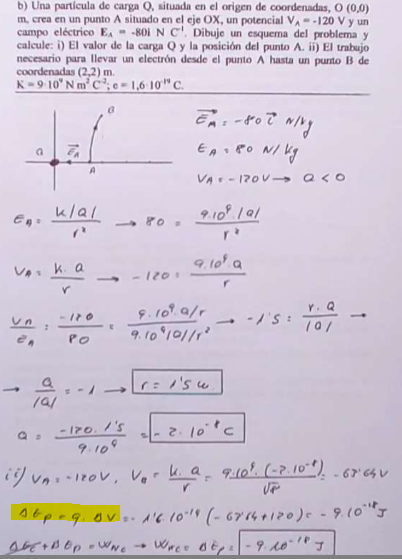 b) Una partícula de carga Q, situada en el origen de coordenadas, O (0,0)
m, crea en un punto A situado en el eje OX, un potencial V_A = -120 V y un
campo eléctrico E_A = -80i N C⁻¹. Dibuje un esquema del problema y
calcule: i) El valor de la carga Q y la posición del punto A. ii) El trabajo
necesario para llevar un electrón desde el punto A hasta un punto B de
coordenadas (2,2) m.
K = 9·10⁹ N m² C⁻²; e = 1,6·10⁻¹⁹ C.
B
Q E_A A
E_A = -80 i N/kg
E_A = 80 N/kg
V_A = -120 V → Q < 0
E_A = K|Q| / r² → 80 = 9·10⁹·|Q| / r²
V_A = K·Q / r → -120 = 9·10⁹·Q / r
V_A / E_A = -120 / 80 = 9·10⁹·Q/r / 9·10⁹|Q|/r² → -1'5 = r·Q / |Q| →
→ Q / |Q| = -1 → r = 1'5 m
Q = -120·1'5 / 9·10⁹ = -2·10⁻⁸ C
ii) V_A = -120V, V_B = K·Q / r = 9·10⁹·(-2·10⁻⁸) / √8 = -63'64V
ΔE_p = q·ΔV = -1'6·10⁻¹⁹ (-63'64+120) = -9·10⁻¹⁸ J
ΔE_c + ΔE_p = W_NC → W_NC = ΔE_p = -9·10⁻¹⁸ J